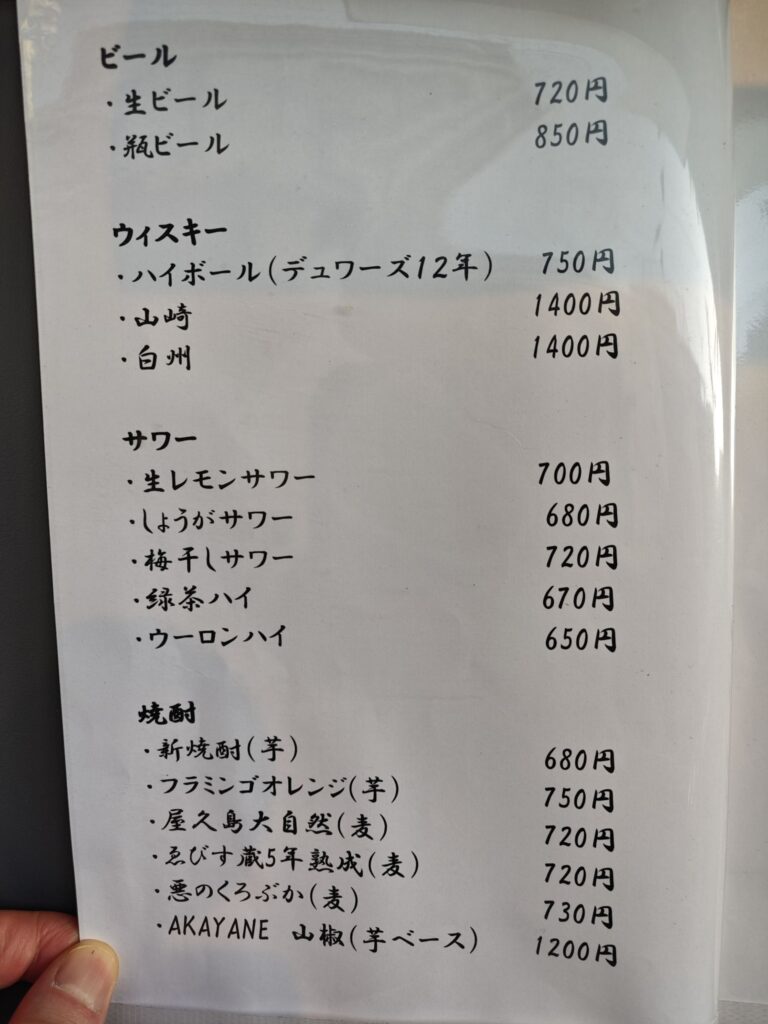 ビール
・生ビール 720円
・瓶ビール 850円
ウィスキー
・ハイボール(デュワーズ12年) 750円
・山崎 1400円
・白州 1400円
サワー
・生レモンサワー 700円
・しょうがサワー 680円
・梅干しサワー 720円
・緑茶ハイ 670円
・ウーロンハイ 650円
焼酎
・新焼酎(芋) 680円
・フラミンゴオレンジ(芋) 750円
・屋久島大自然(麦) 720円
・ゑびす蔵5年熟成(麦) 720円
・悪のくろぶか(麦) 730円
・AKAYANE 山椒(芋ベース) 1200円